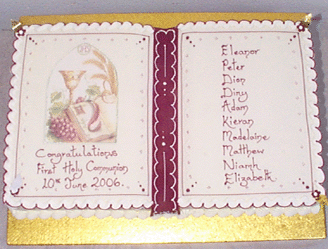 Congratulations
First Holy Communion
10th June 2006.
Eleanor
Peter
Dion
Diny
Adam
Kieran
Madeleine
Matthew
Niamh
Elizabeth